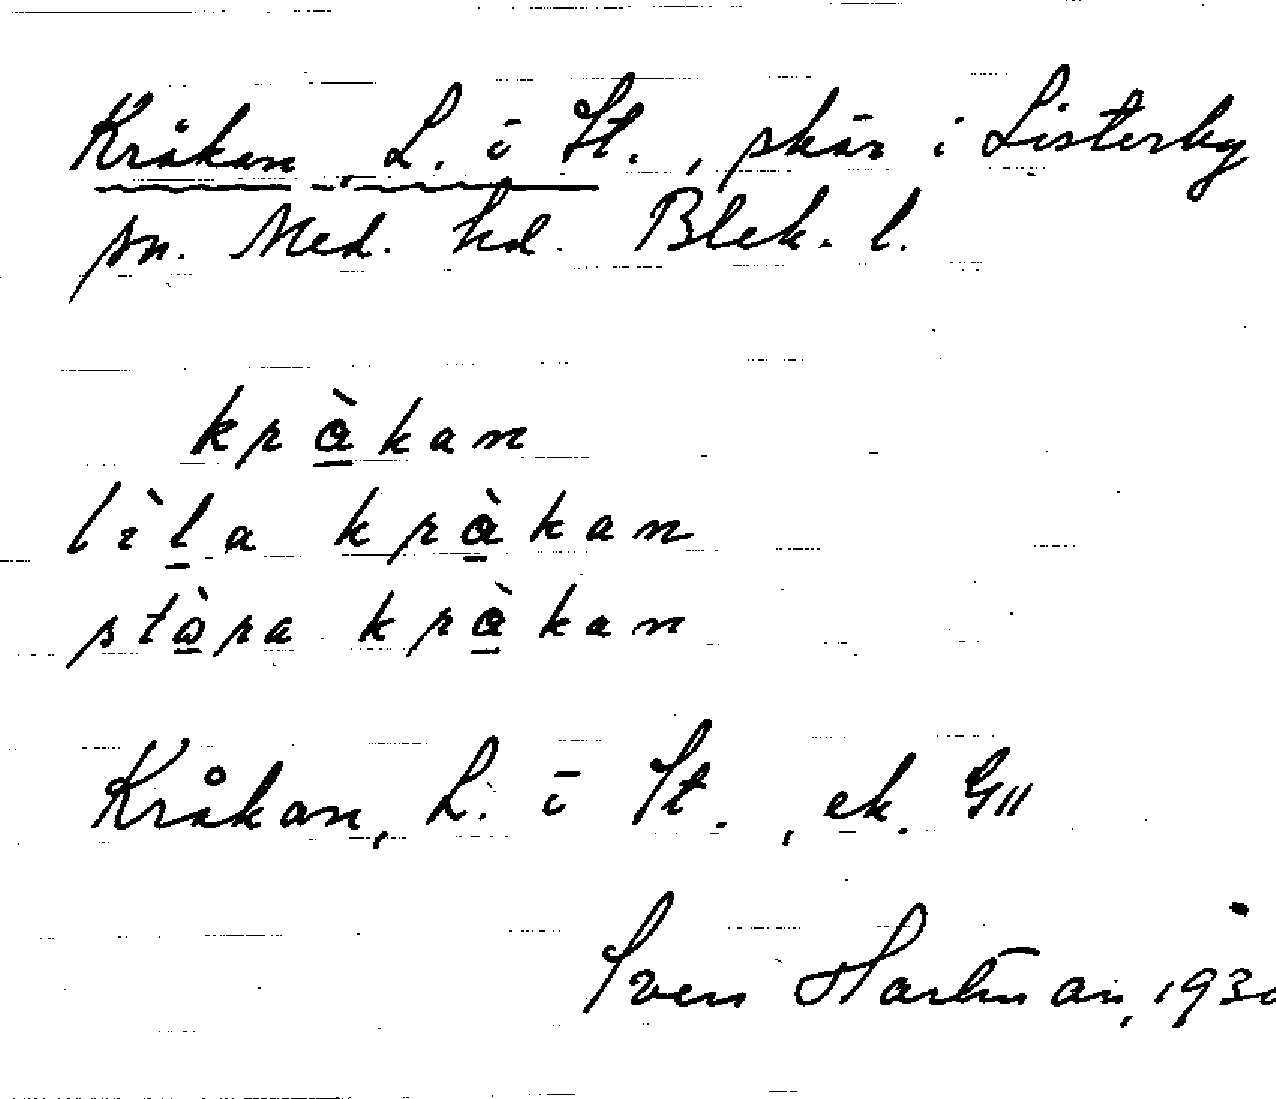 Kråkan, L. o̅ St., skär i Listerby
sn. Med. hd. Blek. l.
krɑ̲̀kan
lìl̲a krɑ̲̀kan
stò̲ra krɑ̲̀kan
Kråkan, L. o̅ St., ek. G11
Sven Hartman, 1930